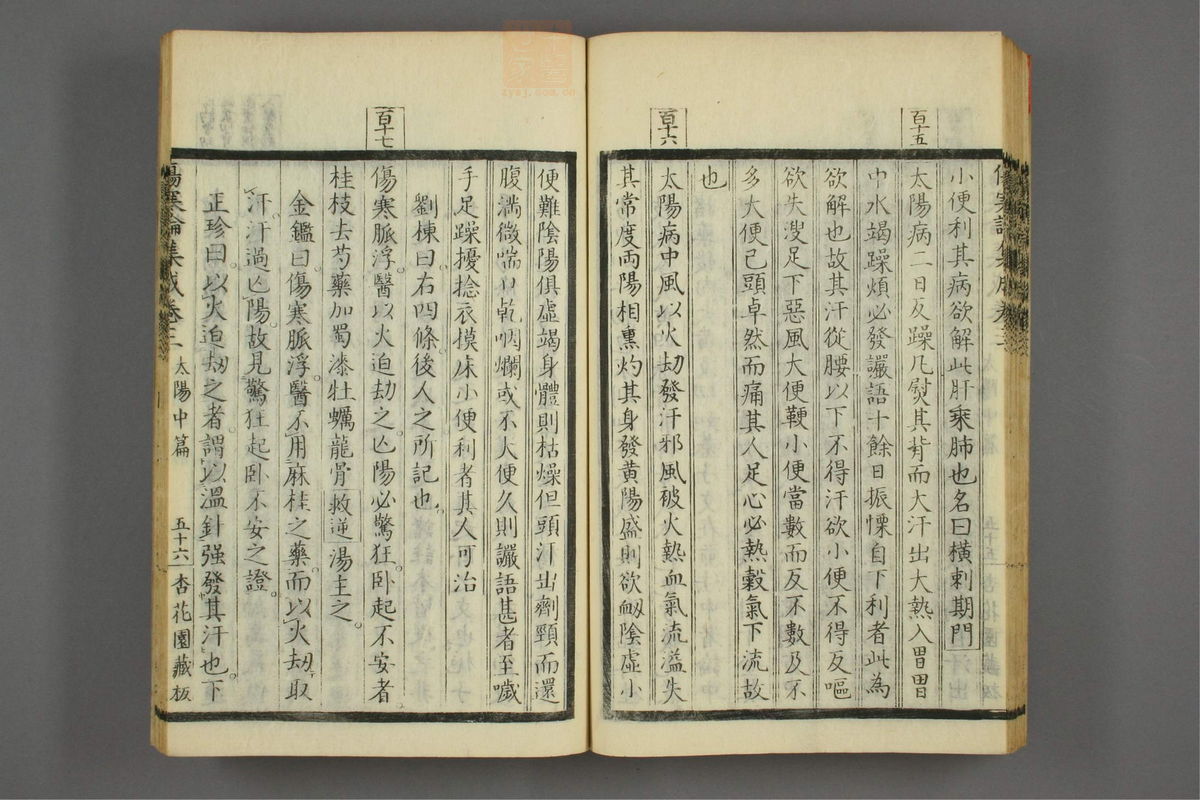 百十五
小便利其病欲解此肝乘肺也名曰橫刺期門
太陽病二日反躁凡熨其背而大汗出大熱入胃胃
中水竭躁煩必發讝語十餘日振慄自下利者此為
欲解也故其汗從腰以下不得汗欲小便不得反嘔
欲失溲足下惡風大便鞕小便當數而反不數及不
多大便已頭卓然而痛其人足心必熱穀氣下流故
也
百十六
太陽病中風以火劫發汗邪風被火熱血氣流溢失
其常度兩陽相熏灼其身發黃陽盛則欲衂陰虛小
便難陰陽俱虛竭身體則枯燥但頭汗出劑頸而還
腹滿微喘口乾咽爛或不大便久則讝語甚者至噦
手足躁擾捻衣摸床小便利者其人可治
劉棟曰右四條後人之所記也
百十七
傷寒脈浮醫以火迫劫之亡陽必驚狂臥起不安者
桂枝去芍藥加蜀漆牡蠣龍骨救逆湯主之
金鑑曰傷寒脈浮醫不用麻桂之藥而以火劫取
汗汗過亡陽故見驚狂起臥不安之證
正珍曰以火迫劫之者謂以溫針强發其汗也下
傷寒論集成卷三 太陽中篇 五十六 杏花園藏板